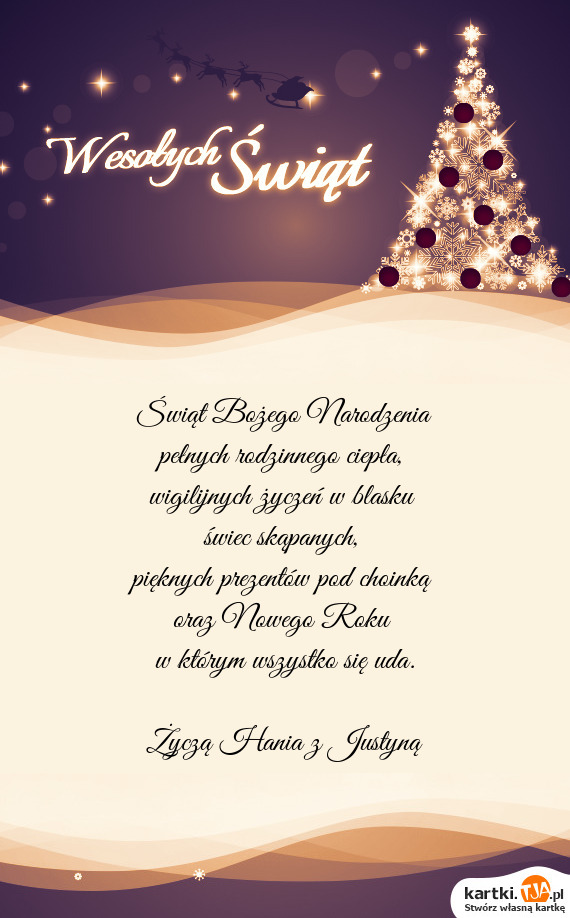 Wesołych Świąt
Świąt Bożego Narodzenia
pełnych rodzinnego ciepła,
wigilijnych życzeń w blasku
świec skąpanych,
pięknych prezentów pod choinką
oraz Nowego Roku
w którym wszystko się uda.
Życzą Hania z Justyną
kartki.TJA.pl
Stwórz własną kartkę